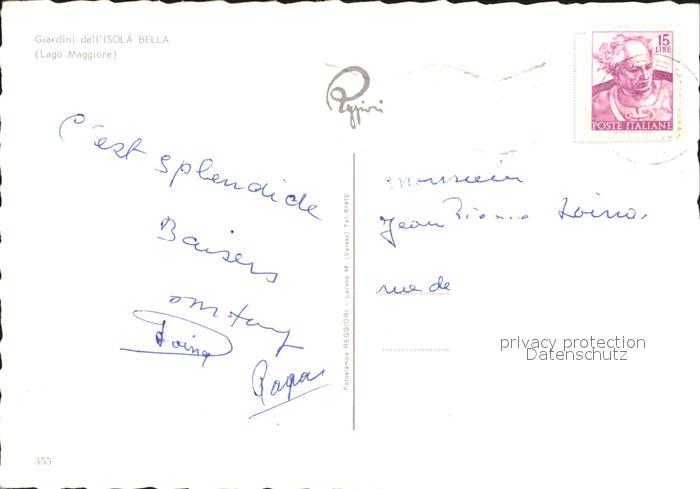 Giardini dell'ISOLA BELLA
(Lago Maggiore)
Reggiori
15
LIRE
POSTE ITALIANE
C'est splendide
Baisers
Papa
Fotostampa REGGIORI - Laveno M. (Varese) Tel. 61412
Monsieur
Jean
rue de
privacy protection
Datenschutz
355